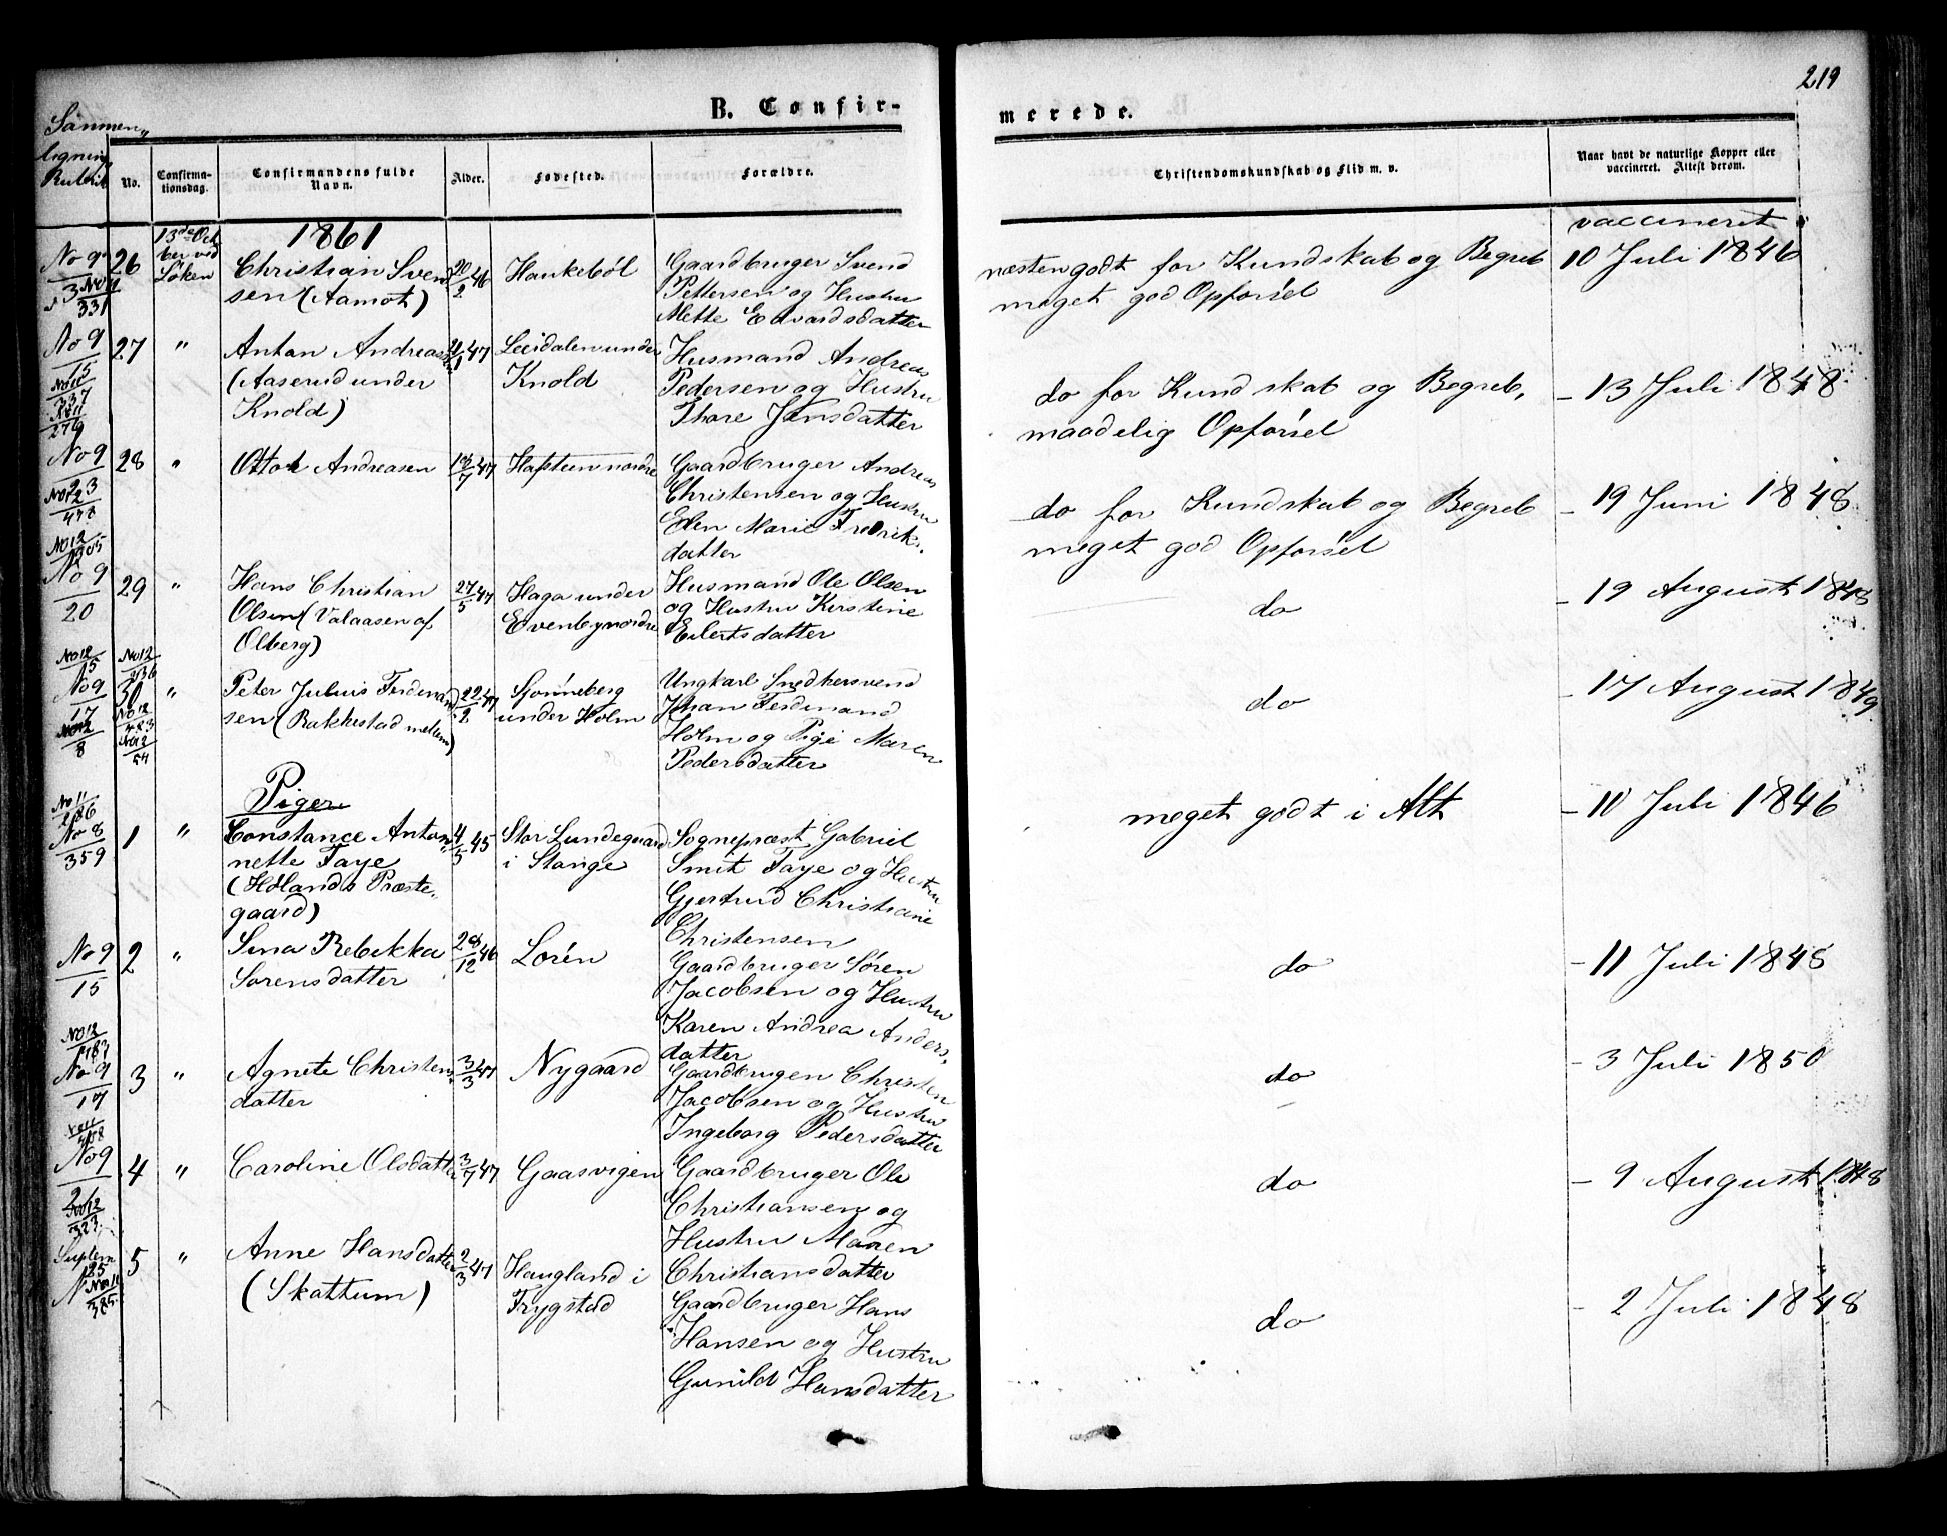 219
B. Confir-
merede.
Sammen„
lignings
Rubrik
No.
Confirma-
tionsdag.
Confirmandens fulde
Navn.
Alder.
Fødested.
Forældre.
Christendomskundskab og Flid m. v.
Naar havt de naturlige Kopper eller
vaccineret. Attest derom.
13de Octo
ber ved
Löken
1861
vaccineret
No 9
26
Christian Svend
sen (Aamot)
20/2 46
Haukeböl
Gaardbruger Svend
Pettersen og Hustru
Mette Edvardsdatter
næsten godt for Kundskab og Begreb
meget god Opförsel
10 Juli 1846
No 9
15
27 "
Anton Andreas
(Aaserud under
Knold)
Leeidalen under
Knold
Husmand Andreas
Pedersen og Hustru
Thore Jensdatter
do for Kundskab og Begreb,
maadelig Opförsel
- 13 Juli 1848
No 9
23
28 "
Otto Andreasen
13/7 47
Hafsteen nordre
Gaardbruger Andreas
Christensen og Hustru
Ellen Marie Fredriks-
datter
do for Kundskab og Begreb
meget god Opförsel
- 19 Juni 1848
No 9
20
29 "
Hans Christian
Olsen (Valaasen af
Olberg)
27/5 47
Haga under
Evenby nordre
Husmand Ole Olsen
og Hustru Kirstine
Eilertsdatter
do
- 19 August 1848
No 9
17
30 "
Peter Julius Ferdinand
sen (Rakkestad mellem)
22/2 47
Sjønneberg
under Holm
Ungkarl Snedkersvend
Johan Ferdinand
Holm og Pige Maren
Pedersdatter
do
- 17 August 1849
Piger
No 8
359
1 "
Constance Anton
nette Faye
(Hölands Præste„
gaard)
4/5 45
Stor Lundegaard
i Stange
Sognepræst Gabriel
Smit Faye og Hustru
Gjertrud Christiane
Christensen
meget godt i Alt
- 10 Juli 1846
No 9
15
2 "
Sina Rebekka
Sörensdatter
28/12 46
Lorén
Gaardbruger Sören
Jacobsen og Hustru
Karen Andrea Anders-
datter
do
- 11 Juli 1848
No 9
17
3 "
Agnete Christens
datter
3/3 47
Nygaard
Gaardbrugen Christen
Jacobsen og Hustru
Ingeborg Pedersdatter
do
- 3 Juli 1850
No 9
4 "
Caroline Olsdatter
3/7 47
Gaasvigen
Gaardbruger Ole
Christiansen og
Hustru Maren
Christiansdatter
do
- 9 August 1848
Suplem
25
5 "
Anne Hansdatter
(Skattum)
2/3 47
Haugland i
Trygstad
Gaardbruger Hans
Hansen og Hustru
Gunild Hansdatter
do
- 2 Juli 1848